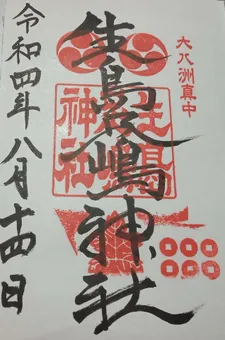 大八洲真中
生島足嶋神社
生島
足嶋
神社
令和四年八月十四日